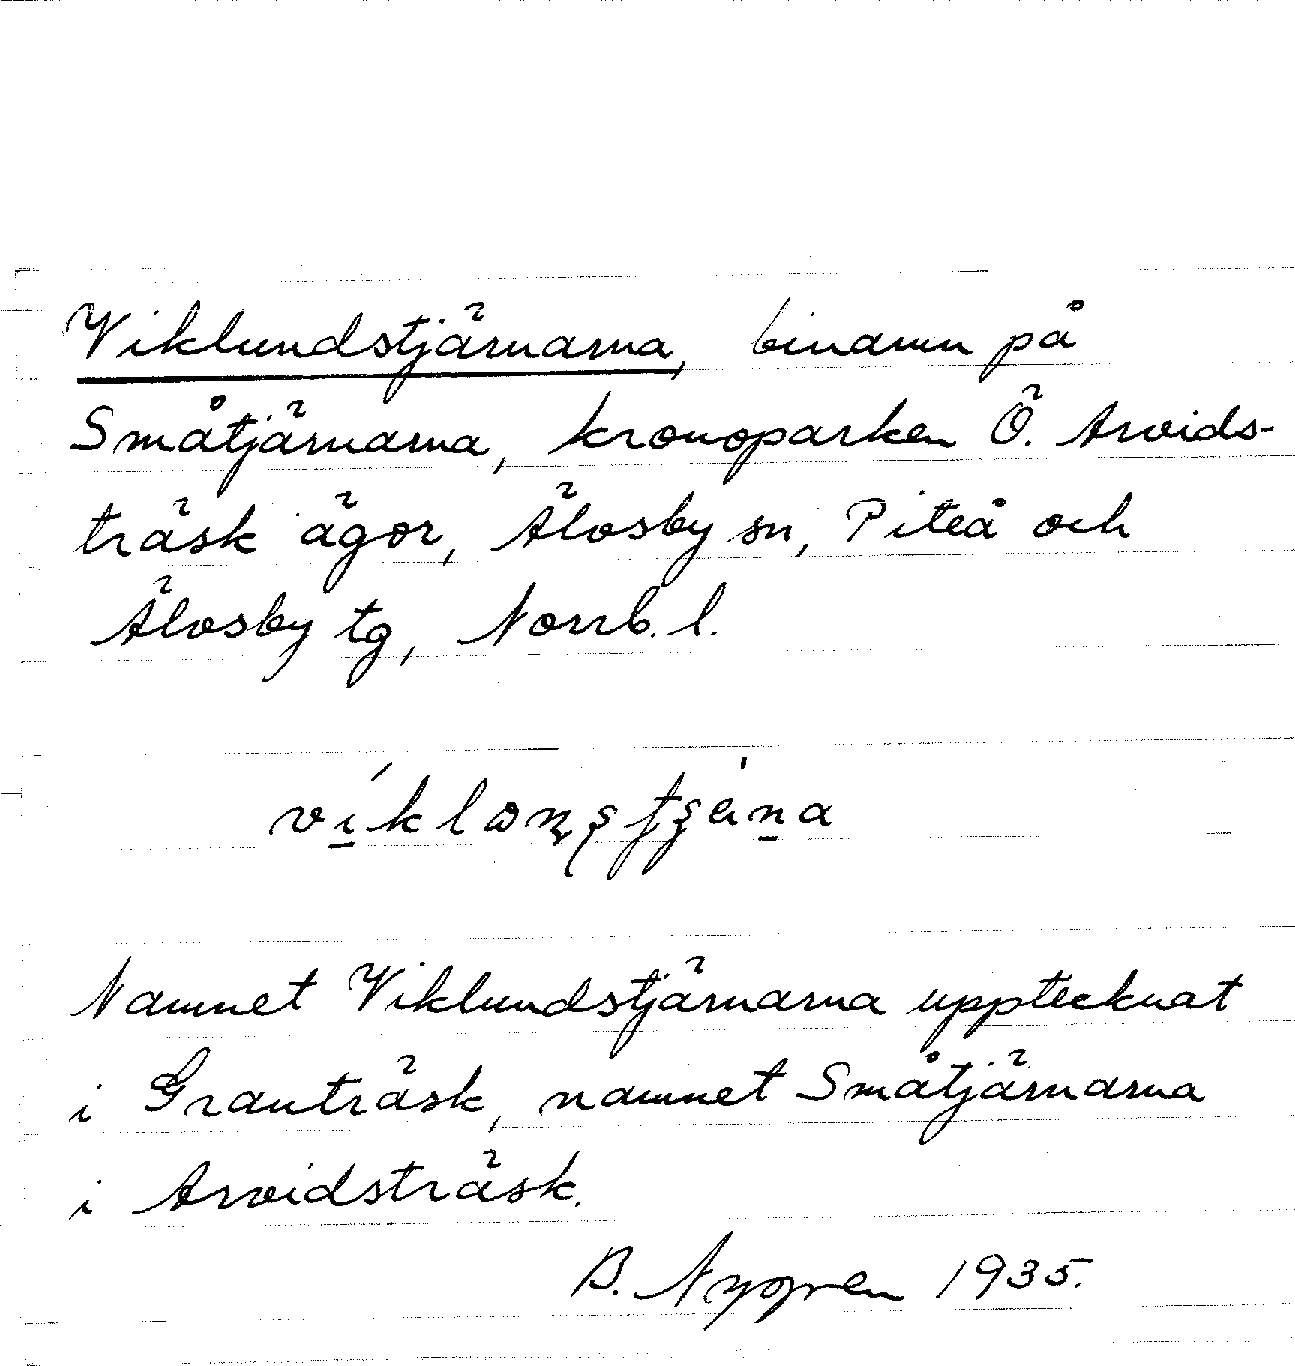 Viklundstjärnarna, binamn på
Småtjärnarna, kronoparken Ö. Arvids-
träsk ägor, Älvsby sn, Piteå och
Älvsby tg, Norrb. l.
Namnet Viklundstjärnarna upptecknat
i Granträsk, namnet Småtjärnarna
i Arvidsträsk.
B. Nygren 1935.